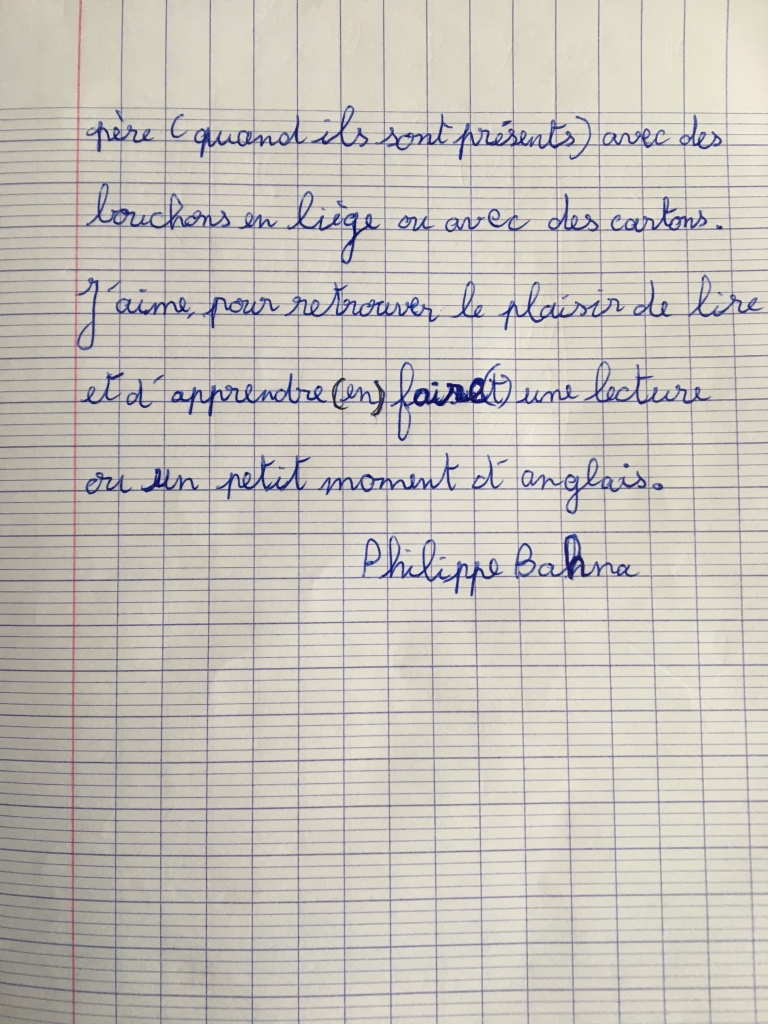 père (quand ils sont présents) avec des
bouchons en liège ou avec des cartons.
J'aime, pour retrouver le plaisir de lire
et d'apprendre (en) faire(t) une lecture
ou un petit moment d'anglais.
Philippe Bahna